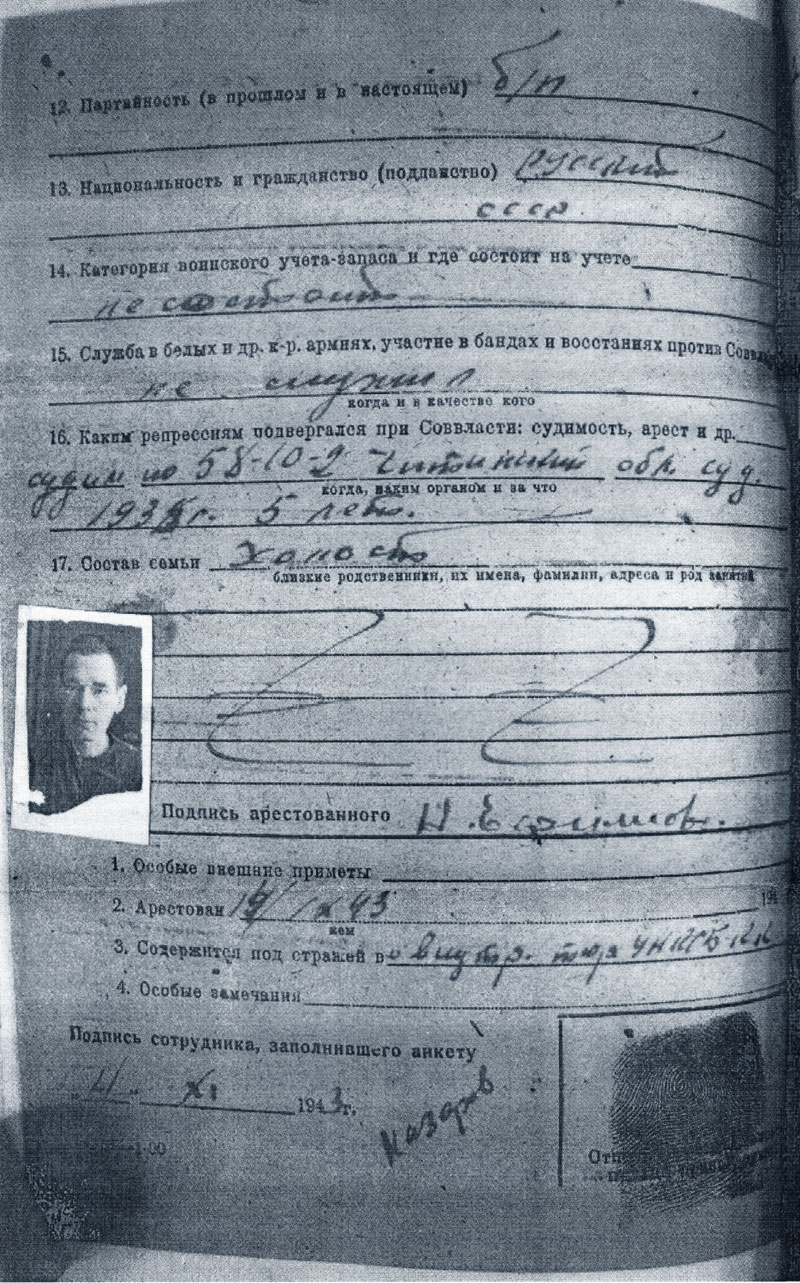 12. Партийность (в прошлом и в настоящем) б/п
13. Национальность и гражданство (подданство) русский
СССР
14. Категория воинского учета-запаса и где состоит на учете
не состоит
15. Служба в белых и др. к-р. армиях, участие в бандах и восстаниях против Соввл
не служил
когда и в качестве кого
16. Каким репрессиям подвергался при Соввласти: судимость, арест и др.
судим по 58-10-2 Читинский обл. суд.
когда, каким органом и за что
г. 5 лет.
17. Состав семьи холост
близкие родственники, их имена, фамилии, адреса и род занятий
Подпись арестованного Н. Ефимов.
1. Особые внешние приметы
2. Арестован IX 43 194
кем
3. Содержится под стражей в внутр. тюр УНКГБ
4. Особые замечания
Подпись сотрудника, заполнившего анкету
XI 1943г.
Назаров